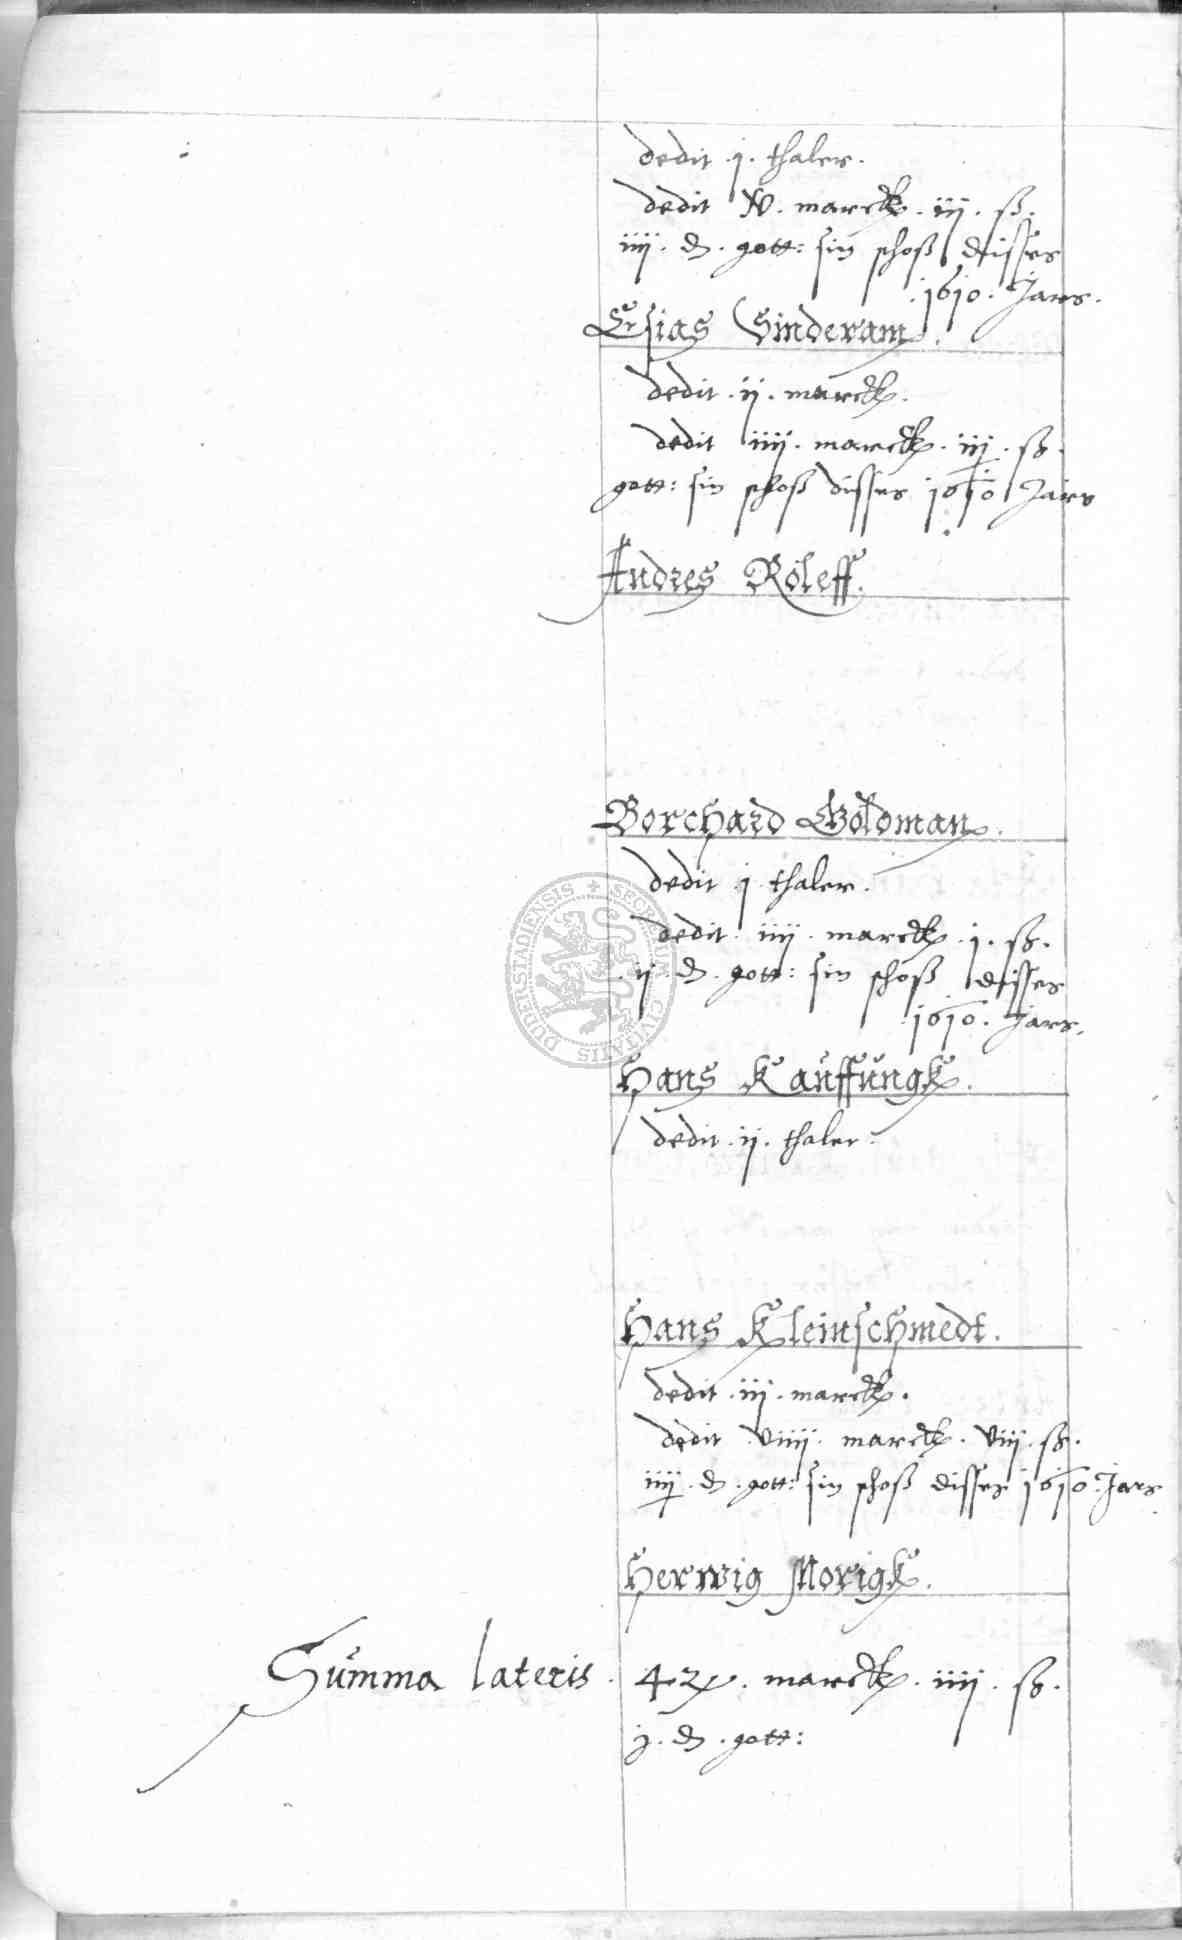 dedit . j . thaler .
dedit xv . marck . iij . ß .
iiij . d . gott : sin schoß disses
. 1610 . Jars .
Esias Hinderam .
dedit . ij . marck .
dedit iiij . marck . iij . ß .
gott : sin schoß disses 1610 Jars
Andres Roleff .
Borchard Goldman .
dedit . j . thaler .
dedit . iiij . marck . j . ß .
. ij . d . gott : sin schoß disses
. 1610 . Jars .
Hans Kauffungk .
dedit . ij . thaler .
Hans Kleinschmedt .
dedit . iij . marck .
dedit . viiij . marck . viij . ß .
iiij . d . gott : sin schoß disses 1610 . Jars
Herwig Morigk .
Summa lateris . marck . iiij . ß .
j . d . gott :
SECRETUM CIVITATIS DUDERSTADIENSIS